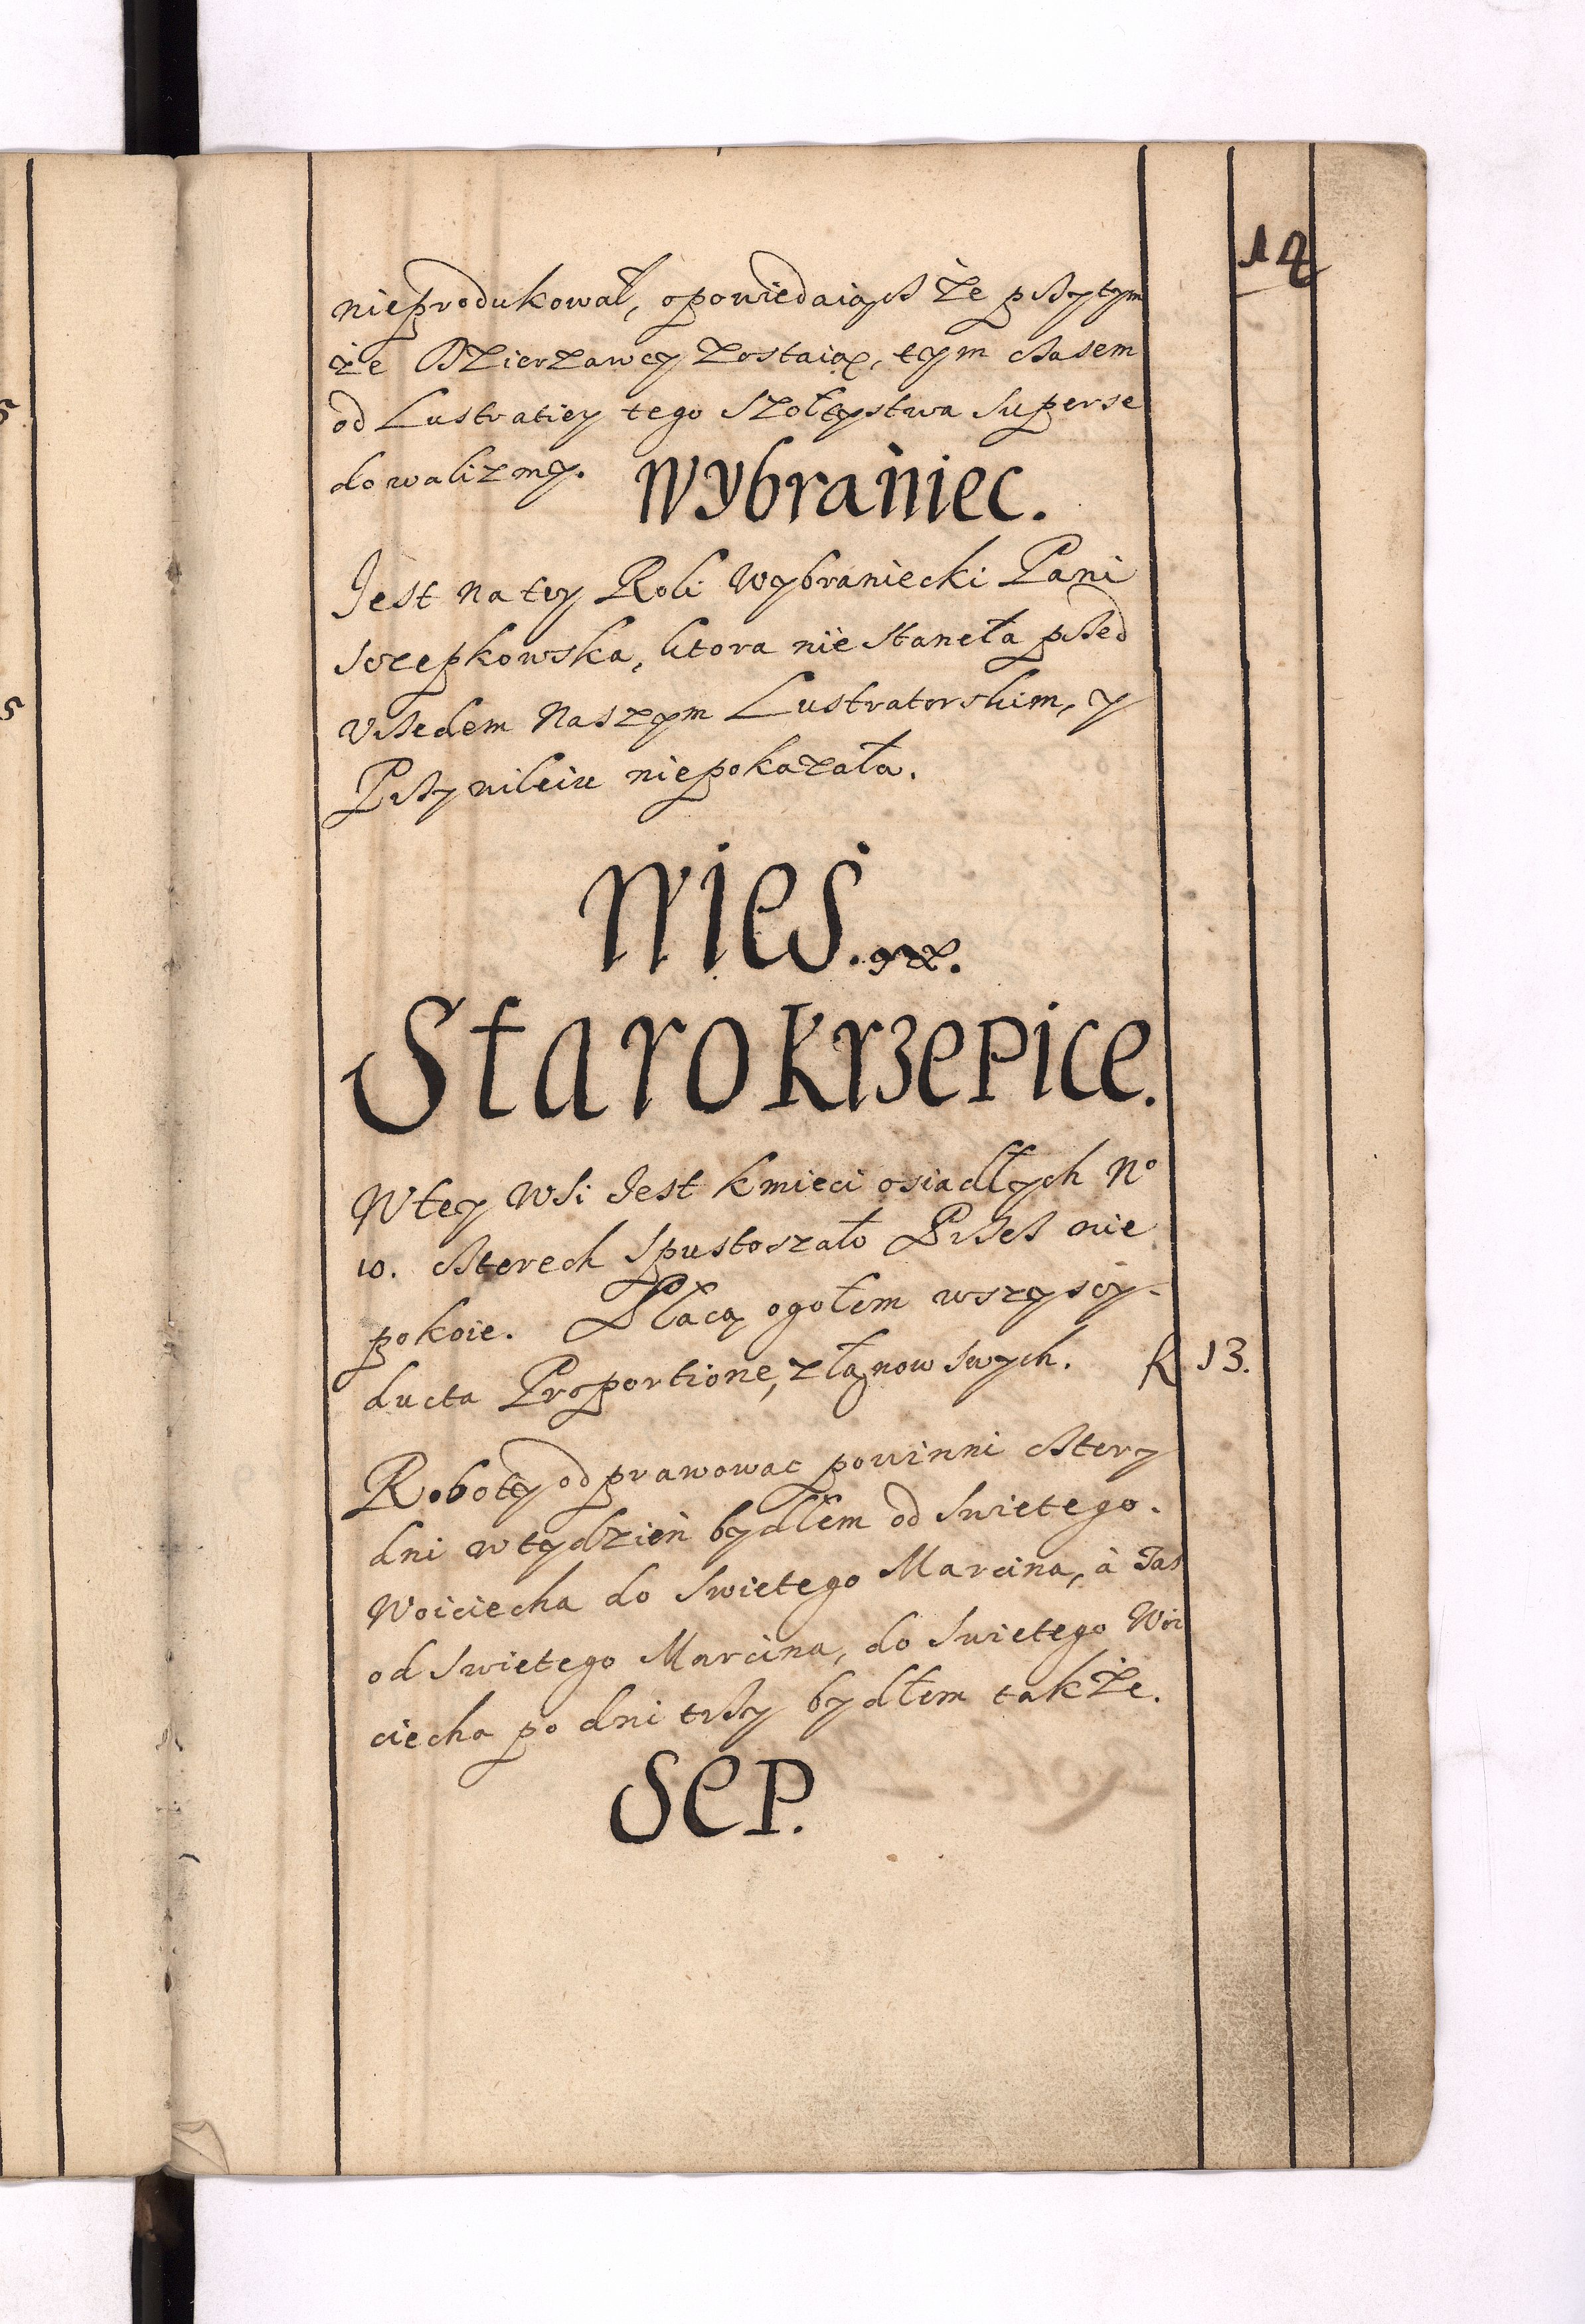 12
nieprodukował, opowiedaiąc że przytym
że Dzierzawcy zostaią, tym czasem
od Lustratiey tego Szołtystwa superse
dowalizmy.
Wybraniec.
Jest na tey Roli Wybraniecki Pani
Szczepkowska, ktora nie stanęła przed
Vrzedem Naszym Lustratorskim, y
Przywileiu niepokazała.
Wieś.
Starokrzepice.
W tey Wsi Jest kmieci osiadłych No
10. czterech spustoszało Przez nie
pokoie. Płacą ogołem wszyscy
ducta Proportione, złanow swych. R 13.
Roboty odprawowac powinni cztery
dni w tydzień bydłem od Swietego.
Woiciecha do Swietego Marcina, à zas
od Swietego Marcina, do Swietego Woi
ciecha po dni trzy bydłem także.
Sep.